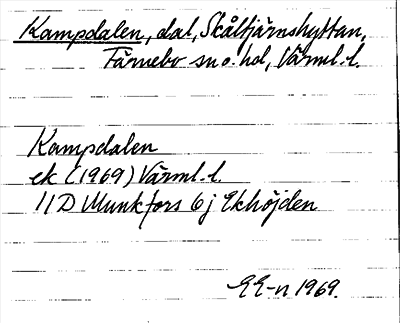 Kampdalen, dal, Skåltjärnshyttan,
Färnebo sn o. hd, Värml. l.
Kampdalen
ek (1969) Värml. l.
11D Munkfors 6j Ekhöjden
EE-n 1969.